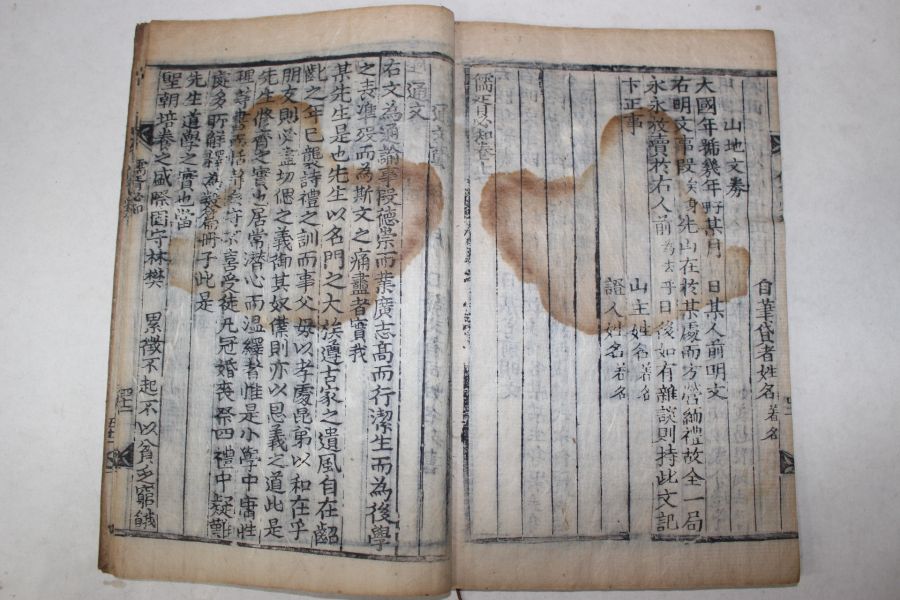 自筆貸者姓名著名
山地文券
大國年號幾年某月 日某人前明文
右明文事段矣身先山在於某處而方營緬禮故全一局
永永放賣於右人前為去乎日後如有雜談則持此文記
卞正事
山主姓名著名
證人姓名著名
儒胥必知卷
通文
右文為通諭事段德崇而業廣志高而行潔生而為後學
之表準歿而為斯文之痛盡者實我
某先生是也先生以名門之大族遵古家之遺風自在齠
齔之年已襲詩禮之訓而事父母以孝處昆弟以和在乎
朋友則心盡切偲之義御其奴僕則亦以恩義之道此是
先生修齊之實也居常潛心而溫繹者惟是小學中庸性
理等書 不喜受徒凡冠婚喪祭四禮中疑難
處多所解釋為 此是
先生道學之實也當
聖朝培養之盛際固守林樊 累徵不起不以貧乏窮餓
儒胥必知